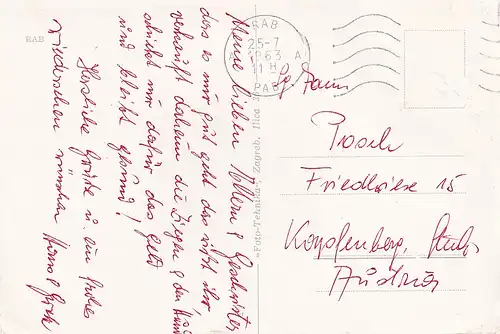 RAB
Meine lieben Eltern & Geschwister
dass es mir gut geht das wißt ihr,
verkauft daheim die Ziegen & den
schickt mir dafür das Geld
und bleibt gesund!
Herzliche Grüße u. ein frohes
Wiedersehen wünschen Hans &
"Foto-Tehnika", Zagreb, Ilica
RAB
25-7
1963
11 H
РАБ
Fam
Friedlwiese 15
Austria